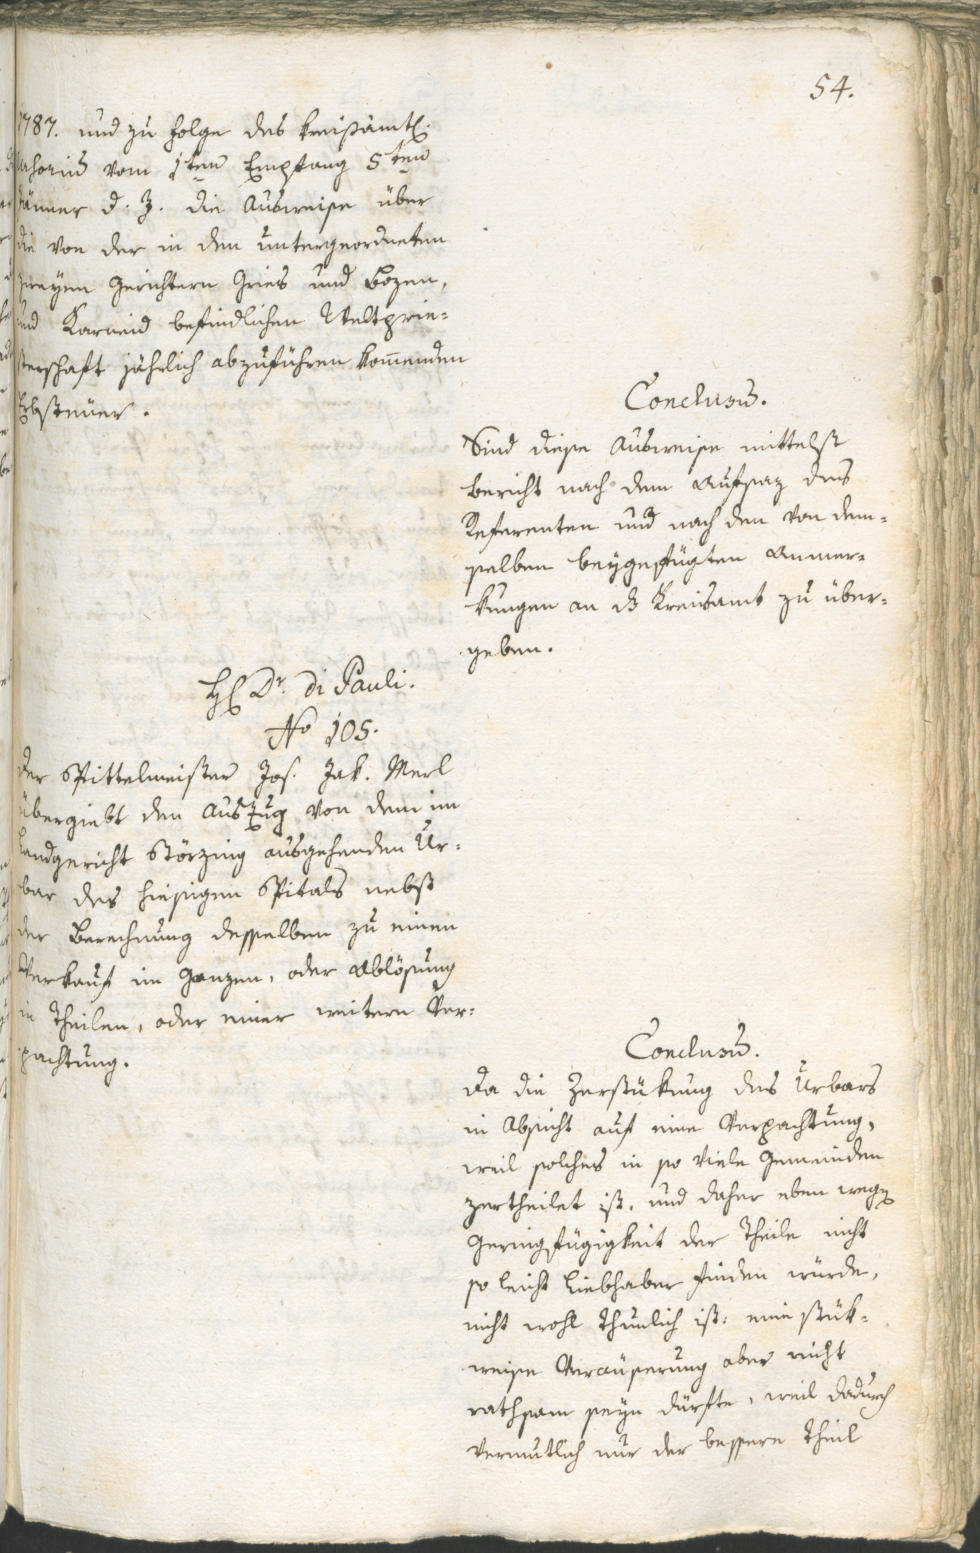 54.
1787. und zu folge des kreisämtl.
vom 1ten Empfang 5ten
Jänner d. J. die Ausweise über
die von der in dem untergeordneten
zweyen Gerichtern Gries und Bozen,
und Karneid befindlichen Weltprie-
sterschaft jährlich abzuführen kom̅enden
Erbsteuer.
Conclusum.
Sind diese Ausweise mittelst
Bericht nach dem Aufsaz des
Referenten und nach den von dem-
selben beygefügten Anmer-
kungen an das Kreisamt zu über-
geben.
H. Dr. di Pauli.
No 105.
Der Spittelmeister Jos. Jak. Merl
übergiebt den Auszug von dem im
Landgericht Störzing ausgehenden Ur-
bar des hiesigen Spitals nebst
der Berechnung desselben zu einen
Verkauf im Ganzen, oder Ablösung
in Theilen, oder einer weitern Ver-
pachtung.
Conclusum.
Da die Zerstükung des Urbars
in Absicht auf eine Verpachtung,
weil solches in so viele Gemeinden
zertheilet ist, und daher eben wegen
Geringfügigkeit der Theile nicht
so leicht Liebhaber finden würde,
nicht wohl thunlich ist: eine stük-
weise Veräuserung aber nicht
rathsam seyn dürfte, weil dadurch
vermutlich nur der bessere Theil